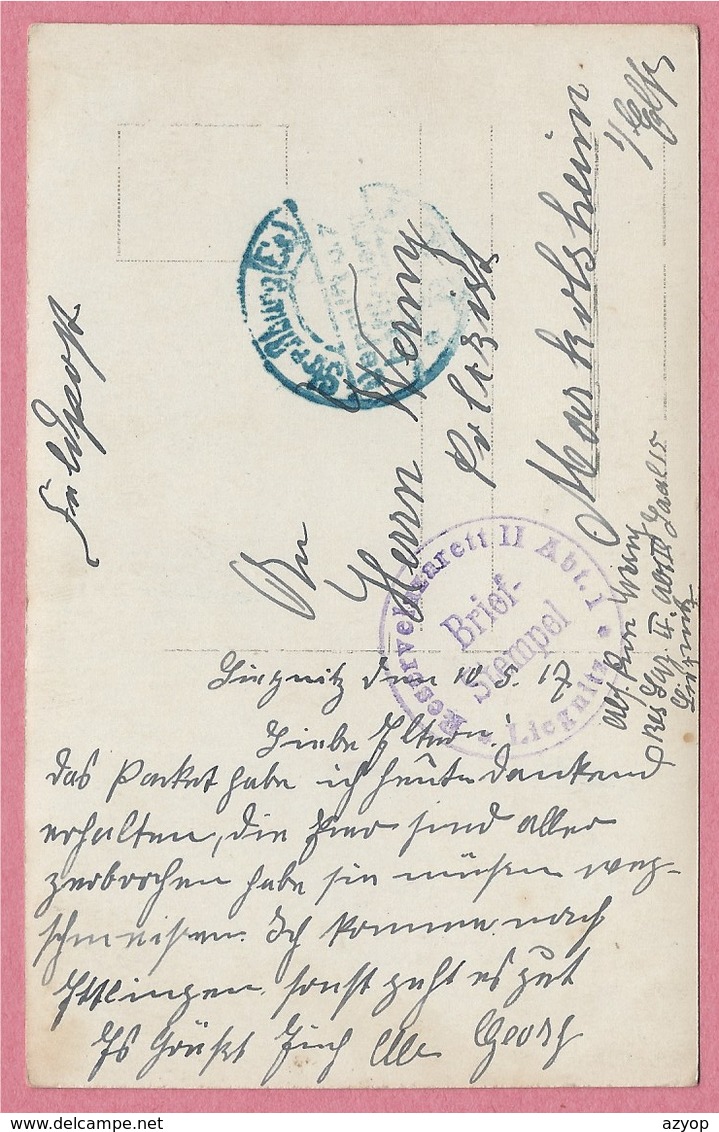 Feldpost
An
Herrn Werny
Polizist
Markolsheim
i/Els.
Reservelazarett II Abt. I
Brief-
Stempel
* Liegnitz *
Abs.
Res Laz. II. Abt II Saal 15
Liegnitz
Liegnitz den 10 5. 17
Liebe Eltern!
Das Packet habe ich heute dankend
erhalten, die Eier sind aller
zerbrochen habe sie müßen weg-
schmeißen. Ich komme nach
Ettlingen sonst geht es gut
Es Grüßt Euch Alle Georg
azyop